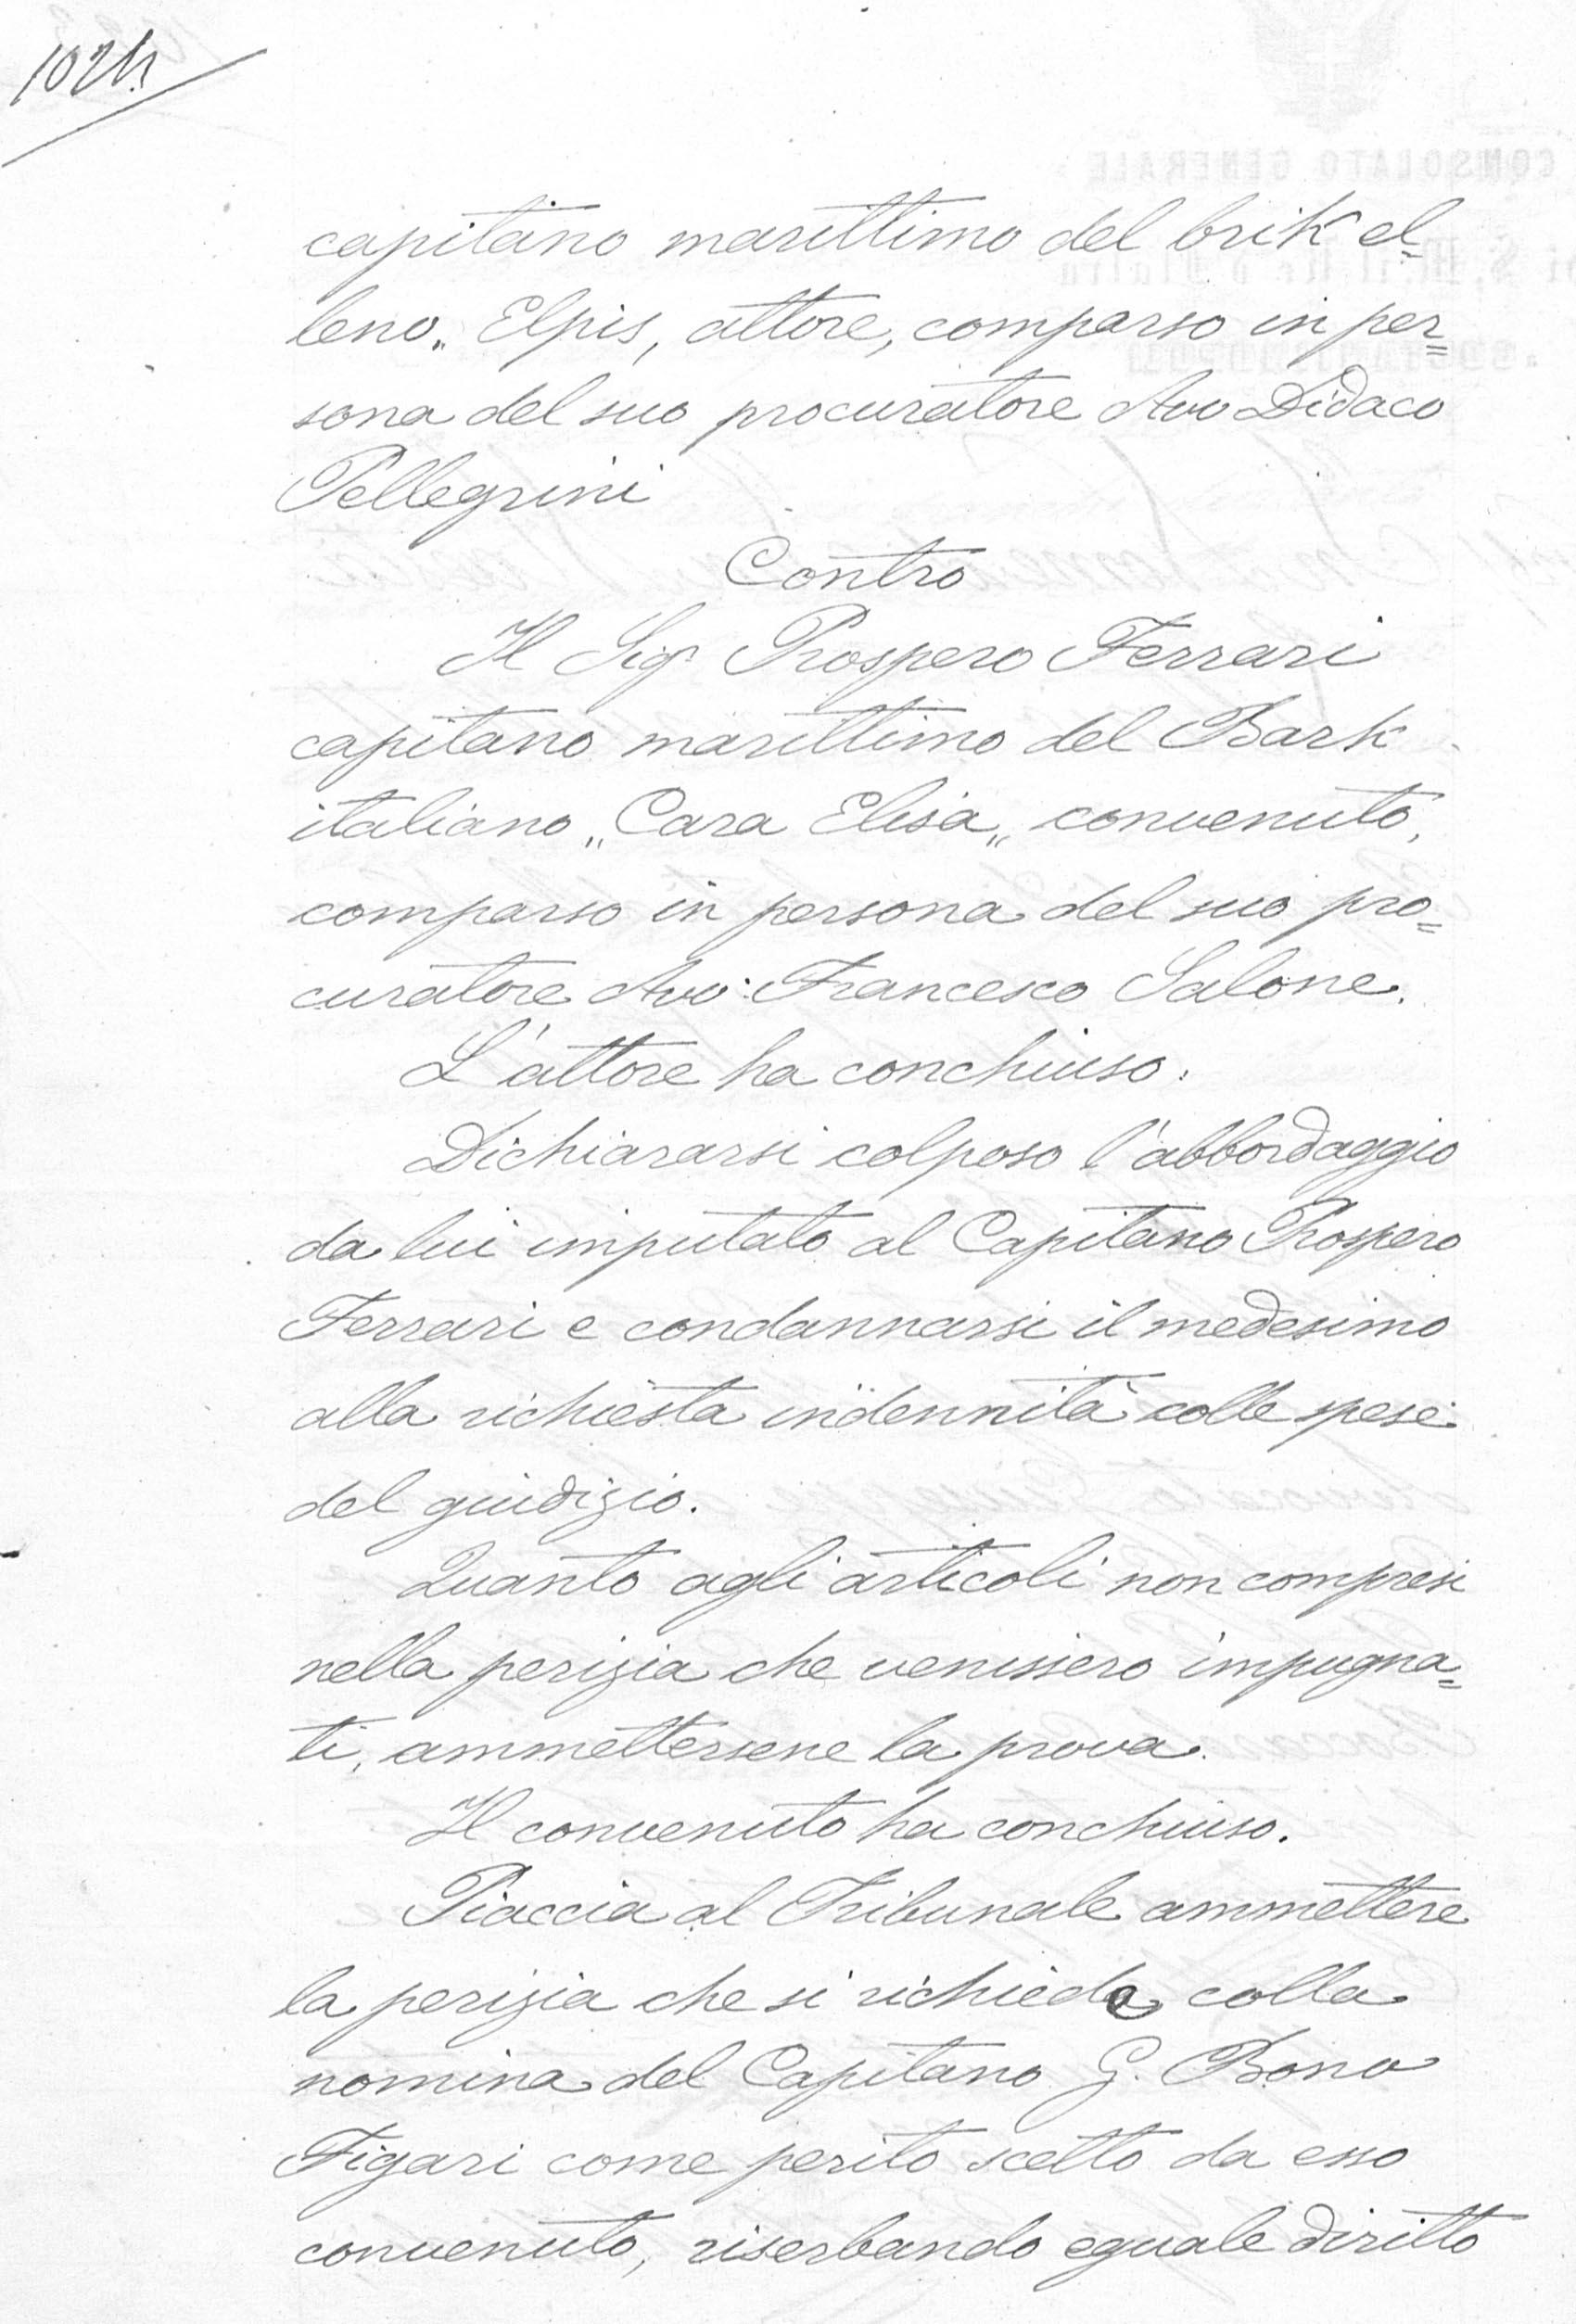 capitano marittimo del brik el=
leno „ Elpis, attore, comparso in per=
sona del suo procuratore Avv Didaco
Pellegrini
Contro
Il Sigr Prospero Ferrari
capitano marittimo del Bark
italiano „Cara Elisa„ convenuto,
comparso in persona del suo pro=
curatore Avv: Francesco Salone.
L'attore ha conchiuso:
Dichiararsi colposo l'abbordaggio
da lui imputato al Capitano Prospero
Ferrari e condannarsi il medesimo
alla richiesta indennità colle spese
del giudizio.
Quanto agli articoli non compresi
nella perizia che venissero impugna=
ti, ammettersene la prova.
Il convenuto ha conchiuso.
Piaccia al Tribunale ammettere
la perizia che si richiede colla
nomina del Capitano G. Bono
Figari come perito scelto da esso
convenuto, riserbando eguale diritto